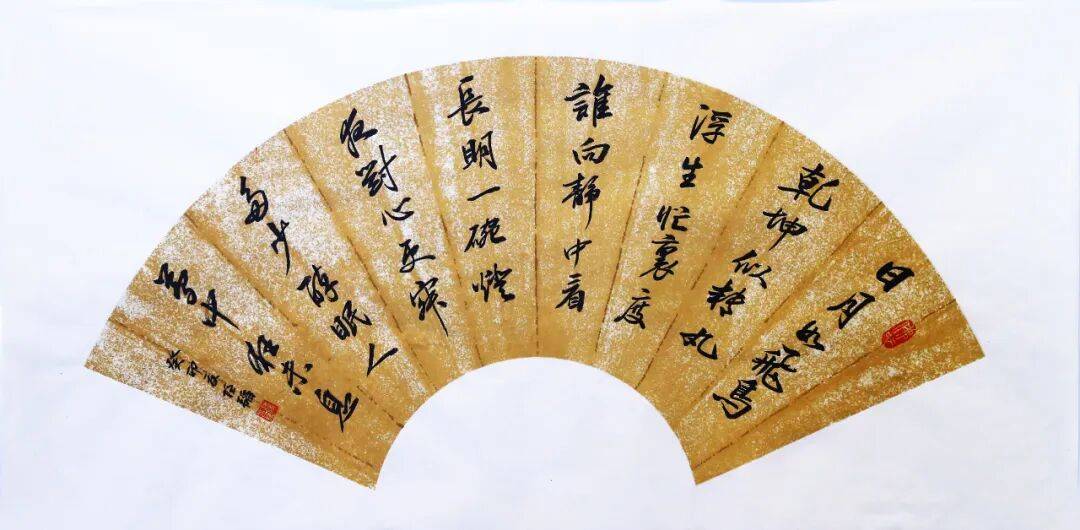 日月如飛鳥
乾坤似轉丸
浮生忙裏度
誰向靜中看
長明一碗燈
夜對心更寂
多少醉眠人
夢中狂未息
癸卯夏